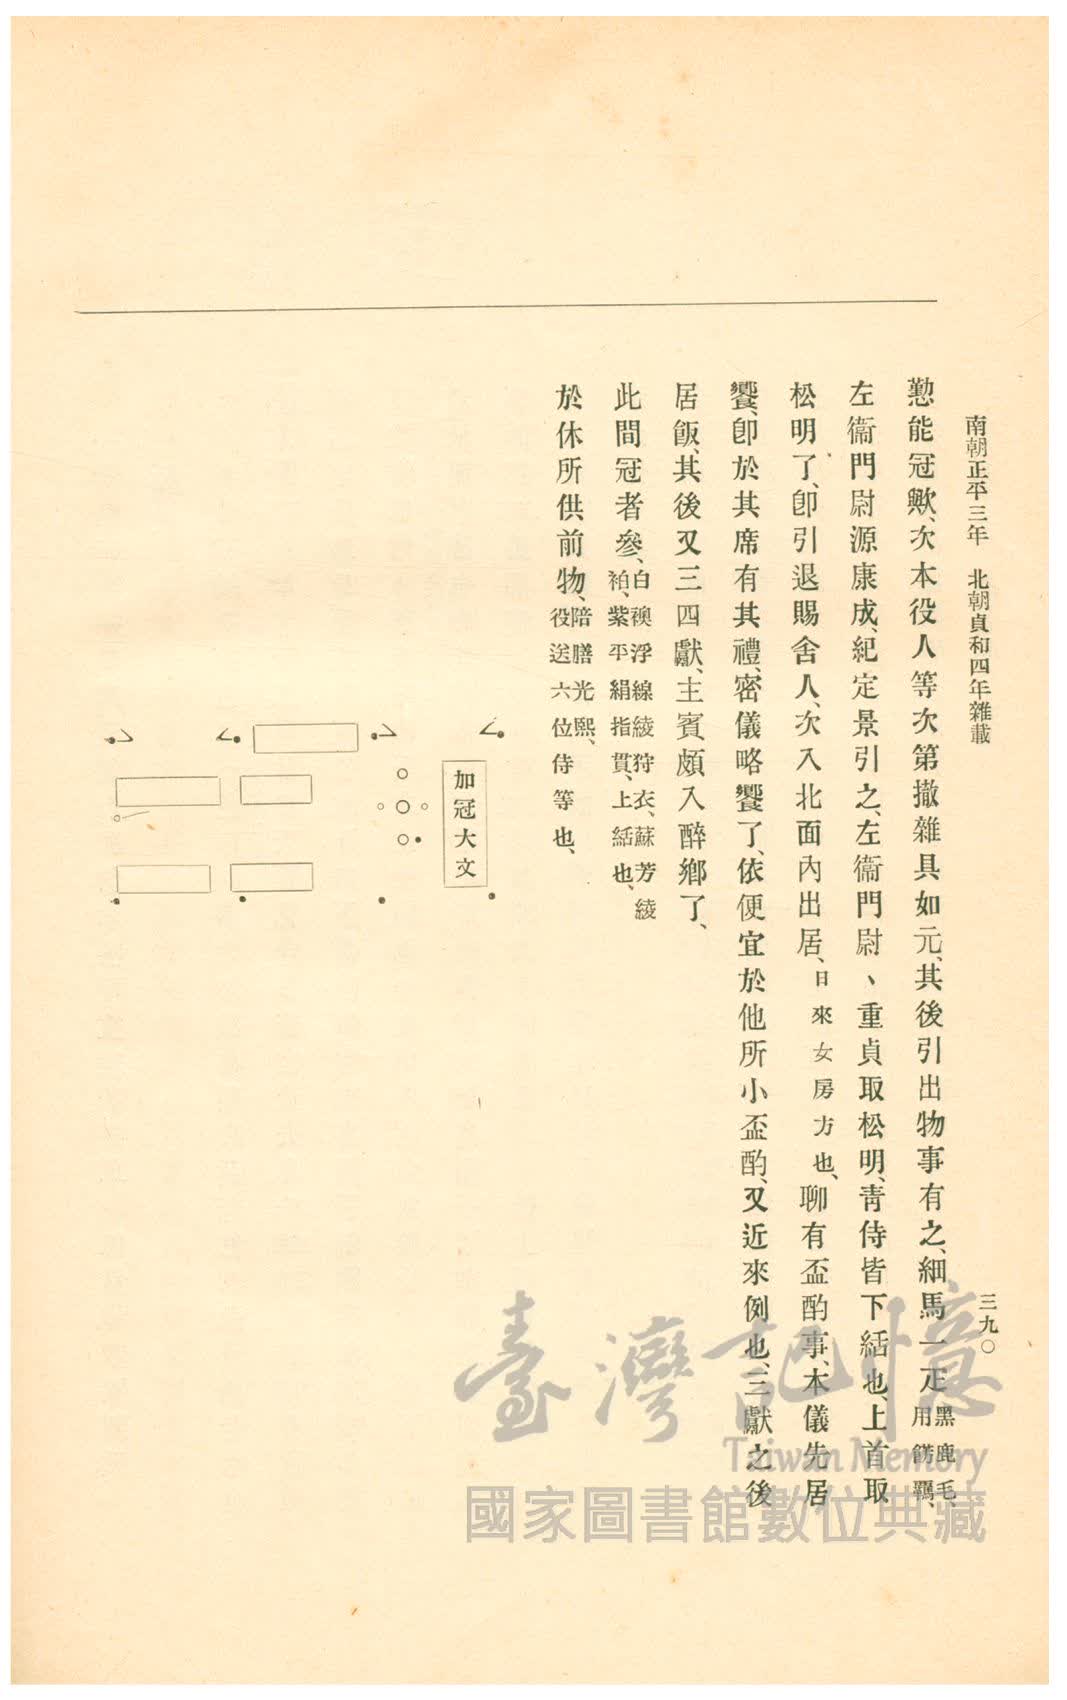 南朝正平三年　北朝貞和四年雜載
三九〇
懃能冠歟、次本役人等次第撤雜具如元、其後引出物事有之、細馬一疋黑鹿毛、用鞴羈、
左衞門尉源康成、紀定景引之、左衞門尉、重貞取松明、靑侍皆下結也、上首取
松明了、卽引退賜舍人、次入北面內出居、日來女房方也、聊有盃酌事、本儀先居
饗、卽於其席有其禮、密儀略饗了、依便宜於他所小盃酌、又近來例也、三獻之後
居飯、其後又三四獻、主賓頗入醉鄕了、
此間冠者參、白襖浮線綾狩衣、蘇芳綾袙、紫平絹指貫、上結也、
於休所供前物、陪膳光熙、役送六位侍等也、
加冠大文
臺灣記憶
Taiwan Memory
國家圖書館數位典藏